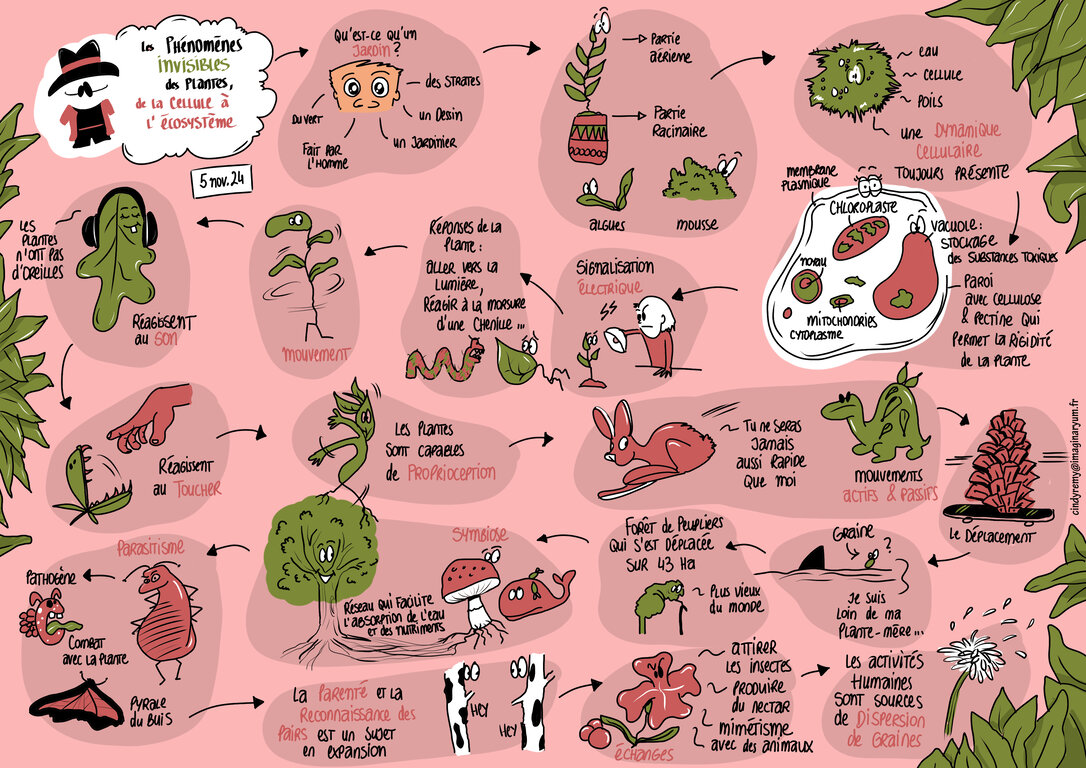 Les Phénomènes
invisibles
des plantes,
de la cellule à
l'écosystème
5 nov. 24
Qu'est-ce qu'un
jardin ?
des strates
un dessin
un jardinier
Fait par
l'homme
Du vert
Partie
aérienne
Partie
Racinaire
algues
mousse
eau
cellule
poils
une dynamique
cellulaire
toujours présente
membrane
plasmique
chloroplaste
vacuole :
stockage
des substances toxiques
noyau
mitochondries
cytoplasme
Paroi
avec cellulose
& pectine qui
permet la rigidité
de la plante
Signalisation
électrique
Réponses de la
plante :
aller vers la
lumière,
réagir à la morsure
d'une chenille...
mouvement
Les
plantes
n'ont pas
d'oreilles
Réagissent
au son
Réagissent
au toucher
Les plantes
sont capables
de proprioception
Tu ne seras
jamais
aussi rapide
que moi
mouvements
actifs & passifs
le déplacement
Graine
?
Je suis
loin de ma
plante-mère...
Forêt de Peupliers
qui s'est déplacée
sur 43 ha
Plus vieux
du monde
Symbiose
Réseau qui facilite
l'absorption de l'eau
et des nutriments
Parasitisme
Pathogène
Combat
avec la plante
Pyrale
du buis
La parenté et la
reconnaissance des
pairs est un sujet
en expansion
Hey
Hey
échanges
attirer
les insectes
produire
du nectar
mimétisme
avec des animaux
Les activités
humaines
sont sources
de dispersion
de graines
cindyremy@imaginaryum.fr